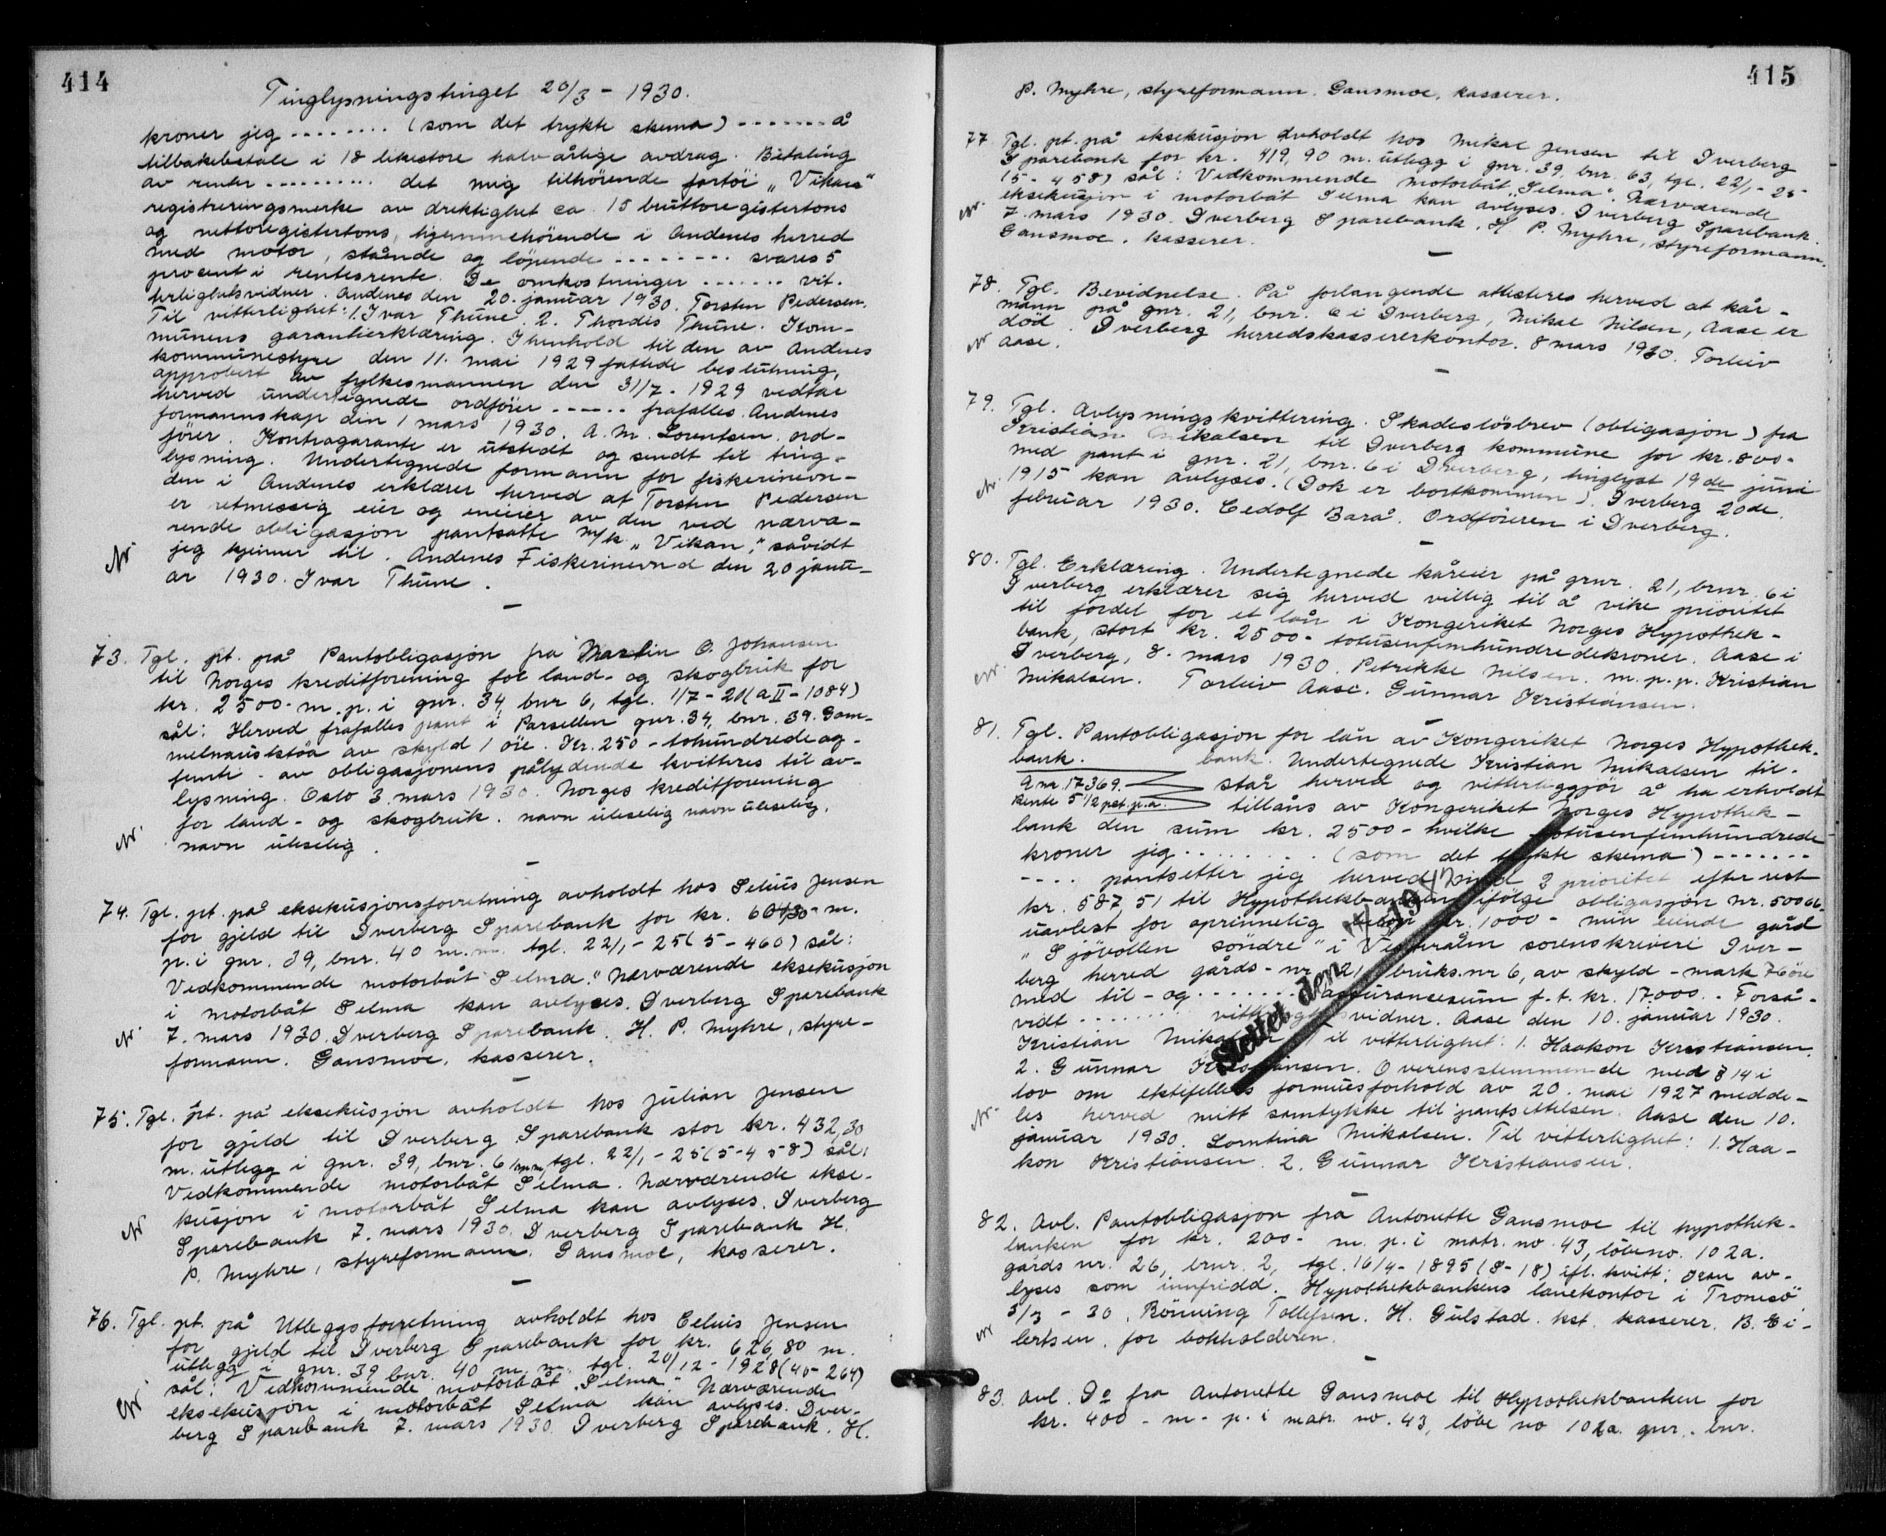 414
Tinglysningstinget 20/3 - 1930.
kroner jeg ........ (som det trykte skema) ------- å
tilbakebetale i 18 likestore halvårlige avdrag. Betaling
av renter ......... det mig tilhörende fartöi „Vikan"
registreringsmerke av drektighet ca. 15 bruttoregistertons
og nettoregistertons, hjemmehörende i Andenes herred
med motor, stående og löpende -------- svares 5
procent i rentesrente. De omkostninger ....... vit.
terlighetsvidner. Andenes den 20. januar 1930. Torsten Pedersen.
Til vitterlighet: 1. Ivar Thune. 2. Thordis Thune. Kom-
munens garantierklæring. I henhold til den av Andenes
kommunestyre den 11. mai 1929 fattede beslutning,
approbert av fylkesmannen den 31/7 - 1929 vedtar
herved undertegnede ordförer ------ frafalles. Andenes
formannskap den 1 mars 1930. A. M. Lorentsen. ord-
förer. Kontragarante er utstedt og sendt til ting-
lysning. Undertegnede formann for fiskerinevn-
den i Andenes erklærer herved at Torsten Pedersen
er retmessig eier og eneeier av den ved nærvæ-
rende obligasjon pantsatte m/k „Vikan", såvidt
jeg kjenner til. Andenes Fiskerinevnd den 20 janu-
ar 1930. Ivar Thune.
73. Tgl. pt. på Pantobligasjon fra Martin O. Johansen
til Norges kreditforening for land- og skogbruk for
kr. 2500.- m. p. i gnr. 34, bnr 6, tgl. 1/7 - 21 (a II - 1084)
sål: Herved frafalles pant i Parsellen gnr. 34, bnr. 39. Gam-
melnaustöa av skyld 1 öre. Kr. 250 - tohundredeog-
femti - av obligasjonens pålydende kvitteres til av-
lysning. Oslo 3. mars 1930. Norges kreditforening
for land- og skogbruk. navn uleselig navn uleselig.
navn uleselig.
74. Tgl. pt. på eksekusjonsforretning avholdt hos Selius Jensen
for gjeld til Dverberg Sparebank for kr. m.
p. i gnr. 39, bnr. 40 m. m. tgl. 22/1 - 25 (5 - 460) sål:
Vedkommende motorbåt „Selma." Nærværende eksekusjon
i motorbåt Selma kan avlyses. Dverberg Sparebank
7. mars 1930. Dverberg Sparebank. H. P. Myhre, styre-
formann. Gansmoe, kasserer.
75. Tgl. pt. på eksekusjon avholdt hos Julian Jensen
for gjeld til Dverberg Sparebank stor kr. 432,30
m. utlegg i gnr. 39, bnr. 6 m.m. tgl. 22/1 - 25 (5 - 458) sål:
Vedkommende motorbåt Selma. Nærværende ekse-
kusjon i motorbåt Selma kan avlyses. Dverberg
Sparebank 7. mars 1930. Dverberg Sparebank H.
P. Myhre, styreformann. Gansmoe, kasserer.
76. Tgl. pt. på Utleggsforretning avholdt hos Celius Jensen
for gjeld til Dverberg Sparebank for kr. 626,80 m.
utlegg i gnr. 39 bnr. 40 m. m. tgl. 20/12 - 1928 (40 - 264)
sål: Vedkommende motorbåt „Selma". Nærværende
eksekusjon i motorbåt Selma kan avlyses. Dver-
berg Sparebank 7. mars 1930. Dverberg Sparebank. H.
415
P. Myhre, styreformann. Gansmoe, kasserer.
77 Tgl. pt. på eksekusjon avholdt hos Mikal Jensen til Dverberg
Sparebank for kr. 419,90 m. utlegg i gnr. 39, bnr. 63, tgl. 22/1 - 25 -
(5 - 458) sål: Vedkommende motorbåt „Selma". Nærværende
eksekusjon i motorbåt Selma kan avlyses. Dverberg Sparebank.
7. mars 1930. Dverberg Sparebank. H. P. Myhre, styreformann.
Gansmoe. kasserer.
78. Tgl. Bevidnelse. På forlangende attesteres herved at kår-
mann på gnr. 21, bnr. 6 i Dverberg, Mikal Nilsen, Aase er
död. Dverberg herredskassererkontor. 8 mars 1930. Torleiv
Aase.
79. Tgl. Avlysningskvittering. Skadeslösbrev (obligasjon) fra
Kristian Mikalsen til Dverberg kommune for kr. 800.-
med pant i gnr. 21, bnr. 6 i Dverberg, tinglyst 19de juni
1915 kan avlyses. (Dok er bortkommen). Dverberg 20de
februar 1930. Cedolf Barå. Ordföreren i Dverberg.
80. Tgl. Erklæring. Undertegnede kåreier på grnr. 21, brnr. 6 i
Dverberg erklærer sig herved villig til å vike prioritet
til fordel for et lån i Kongeriket Norges Hypothek-
bank, stort kr. 2500.- totusenfemhundredekroner. Aase i
Dverberg, 8. mars 1930. Petrikke Nilsen. m. p. p. Kristian
Mikalsen. Torleiv Aase. Gunnar Kristiansen.
81. Tgl. Pantobligasjon for lån av Kongeriket Norges Hypothek-
bank. bank. Undertegnede Kristian Mikalsen til-
A nr. 17369. står herved og vitterliggjör å ha erholdt
Rente 5 1/2 pct. p. a. tillåns av Kongeriket Norges Hypothek-
bank den sum kr. 2500 - hvilke totusenfemhundrede
kroner jeg ........ (som det trykte skema) -------
---- pantsetter jeg herved med 2 prioritet efter rest
kr. 587,51 til Hypothekbanken ifölge obligasjon nr. 50066
uavlest for oprinnelig kr. 1000 - min eiende gård
„Sjövollen söndre" i Vesterålen sorenskriveri Dver-
berg herred gårds-nr 21 bruks.nr 6, av skyld - mark 76 öre
med til-og ....... assuransesum f. t. kr. 17000.- Forså-
vidt ........ vidner. Aase den 10. januar 1930.
Kristian Mikalsen Til vitterlighet: 1. Haakon Kristiansen.
2. Gunnar Kristiansen. Overensstemmende med § 14 i
lov om ektefellers formuesforhold av 20. mai 1927 medde-
les herved mitt samtykke til pantsettelsen. Aase den 10.
januar 1930. Lorntina Mikalsen. Til vitterlighet: 1. Haa-
kon Kristiansen. 2. Gunnar Kristiansen.
Slettet den 1947
82. Avl. Pantobligasjon fra Antonette Gansmoe til Hypothek-
banken for kr. 200.- m. p. i matr. no 43, löbeno. 102a.
gårds nr. 26, brnr. 2, tgl. 16/4 - 1895 (8 - 18) ifl. kvitt: Kan av-
lyses som innfridd. Hypothekbankens lånekontor i Tromsö
3/3 - 30. Rönning Tollefsen. H. Gulstad. kst. kasserer. B. Ei-
lertsen. for bokholderen.
83. Avl. Do fra Antonette Gansmoe til Hypothekbanken for
kr. 400 - m. p. i matr. no. 43, löbe no 102a. gnr. . bnr.